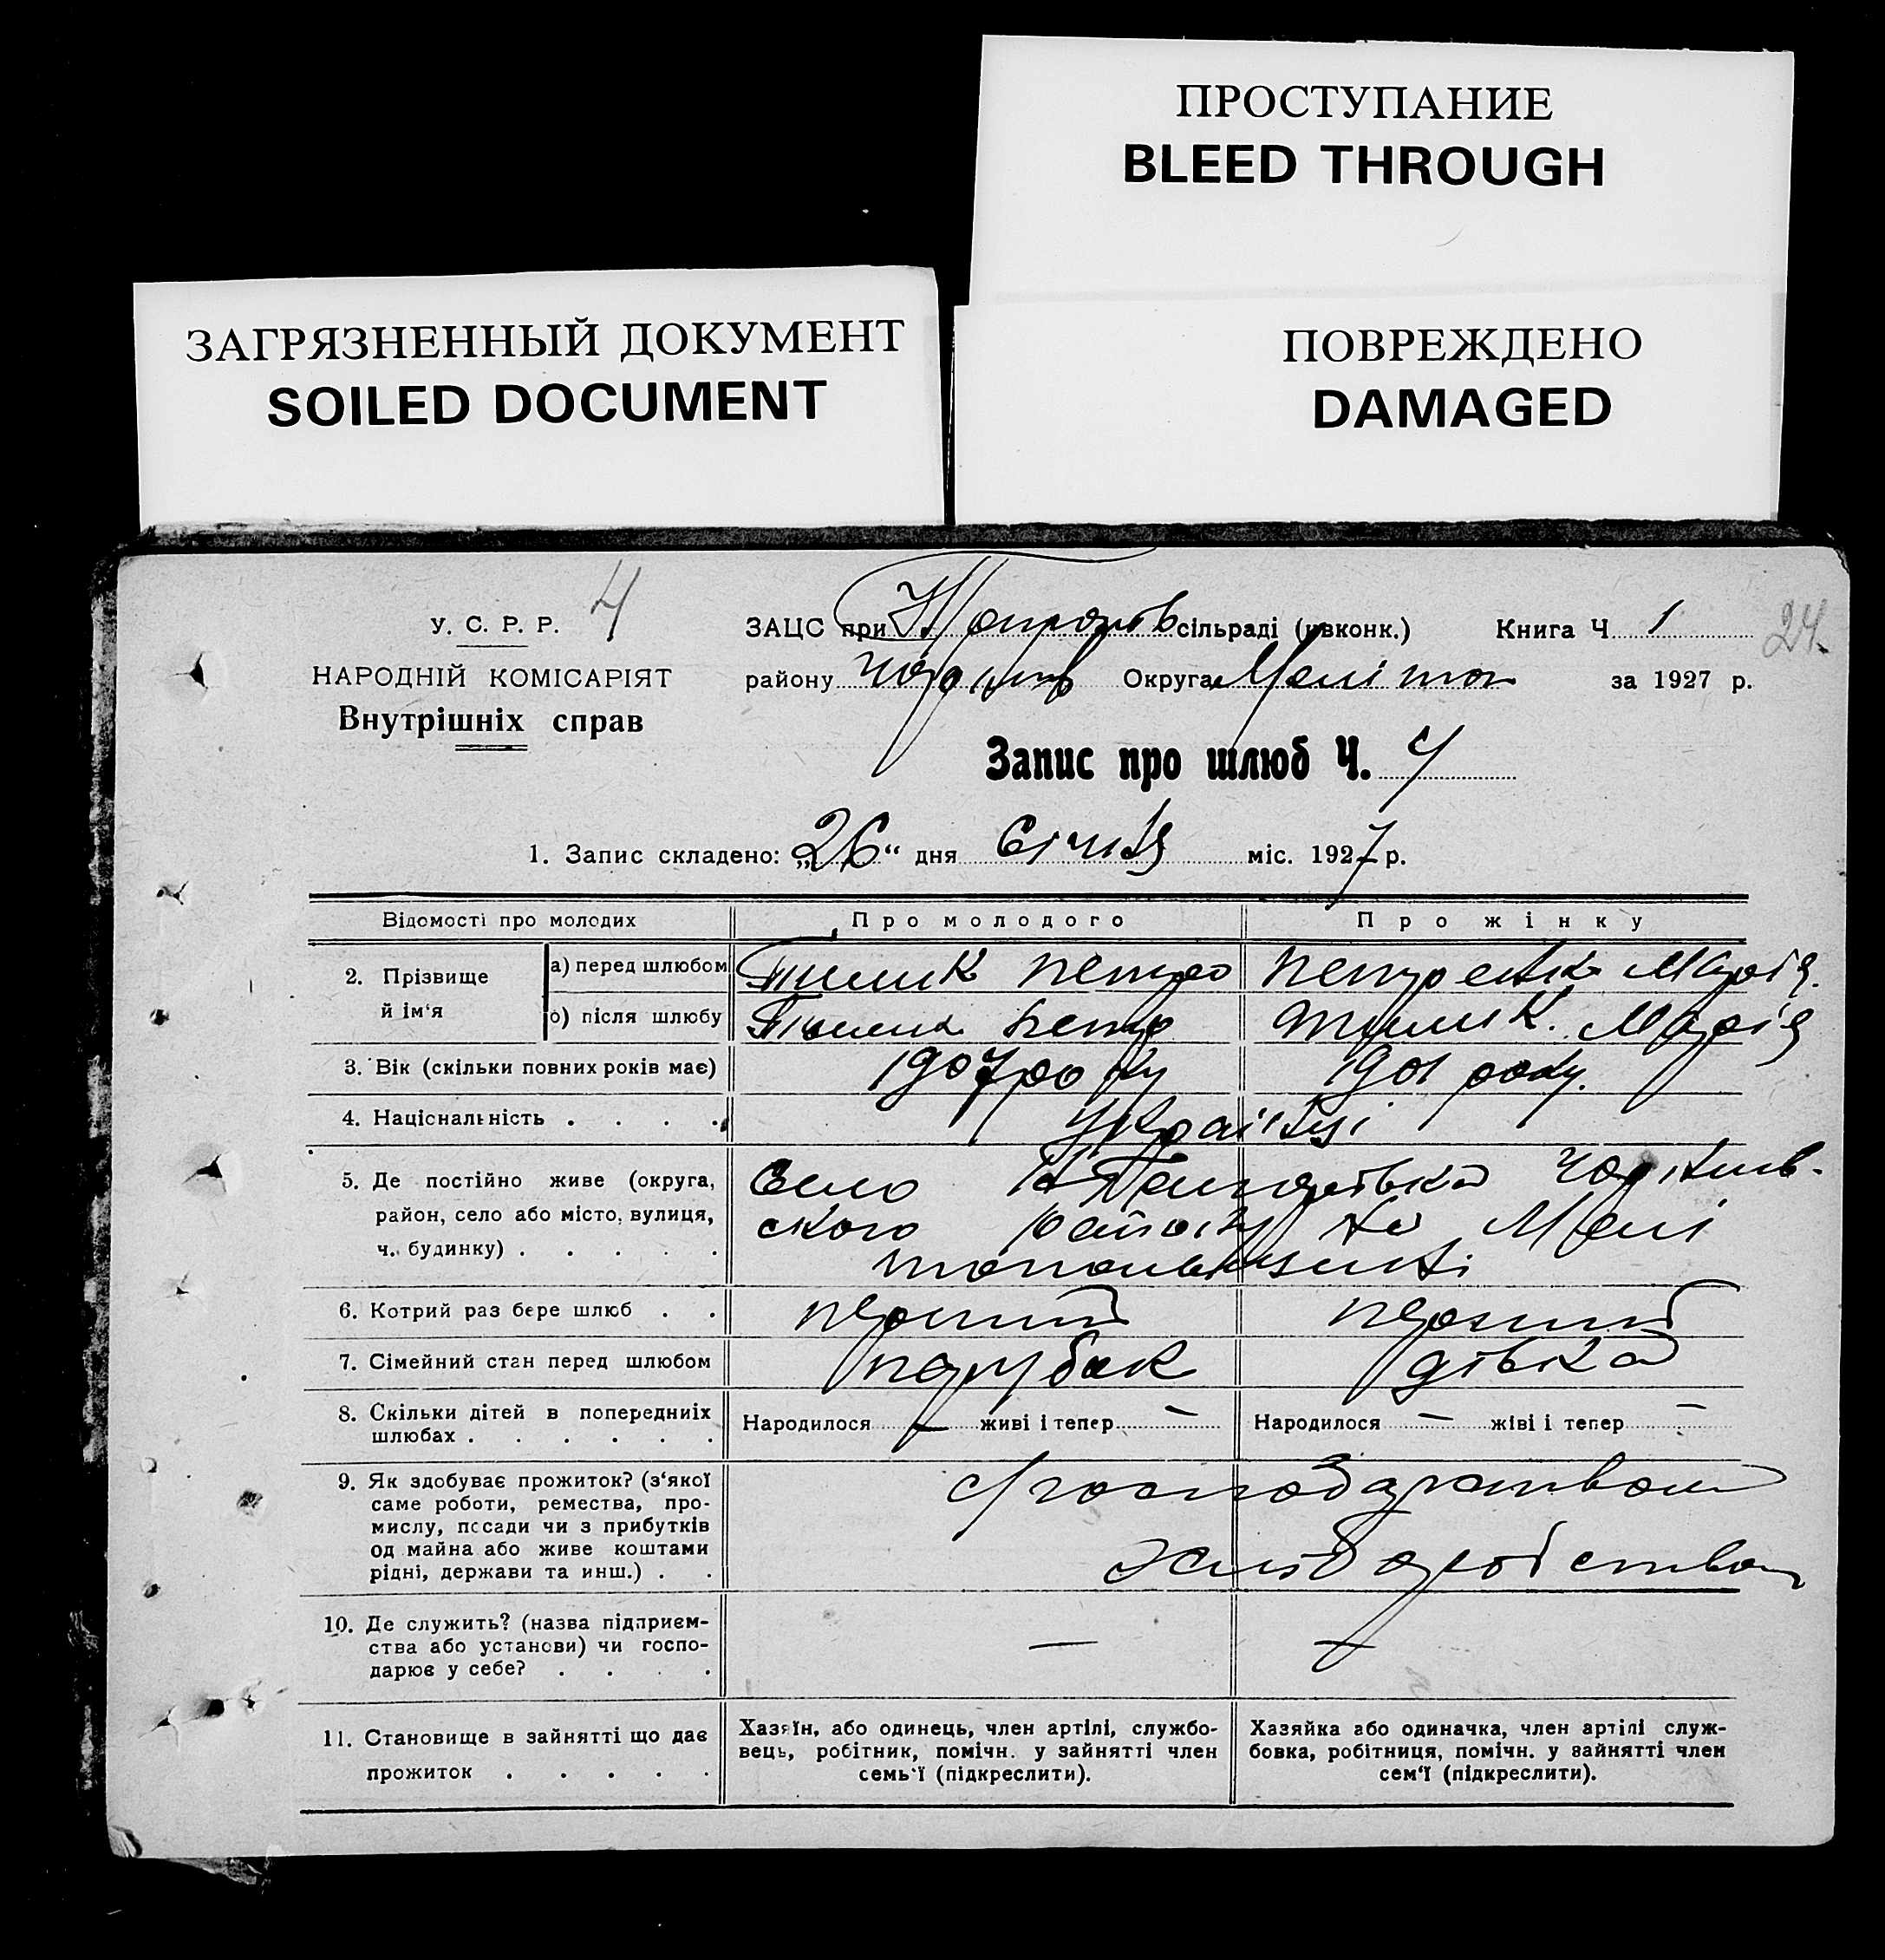 ПРОСТУПАНИЕ
BLEED THROUGH
ЗАГРЯЗНЕННЫЙ ДОКУМЕНТ
SOILED DOCUMENT
ПОВРЕЖДЕНО
DAMAGED
У. С. Р. Р. 4
НАРОДНІЙ КОМІСАРІЯТ
Внутрішніх справ
ЗАЦС при сільраді (ивконк.) Книга Ч 1 24
району Округа Меліто за 1927 р.
Запис про шлюб Ч. 4
1. Запис складено: „26“ дня Січня міс. 1927 р.
Відомості про молодих Про молодого Про жінку
2. Прізвище й ім‘я
а) перед шлюбом Петро Петренко Марія.
о) після шлюбу Петро Марія
3. Вік (скільки повних років має) 1907 року 1901 року.
4. Національність . . . . Українці
5. Де постійно живе (округа, район, село або місто, вулиця, ч. будинку) . . . . .
Село
ского району на Мелі
топольщині
6. Котрий раз бере шлюб . . перший перший
7. Сімейний стан перед шлюбом парубок дівка
8. Скільки дітей в попередниіх шлюбах . . . . . .
Народилося — живі і тепер — Народилося — жіві і тепер —
9. Як здобуває прожиток? (з‘якої
саме роботи, ремества, про-
мислу, посади чи з прибутків
од майна або живе коштами
рідні, держави та инш.) . .
господарством
хліборобством
10. Де служить? (назва підприєм-
ства або установи) чи госпо-
дарює у себе? . . . .
— —
11. Становище в зайнятті що дає
прожиток . . . . .
Хазяїн, або одинець, член артілі, службо-
вець, робітник, помічн. у зайнятті член
семь‘ї (підкреслити).
Хазяйка або одиначка, член артілі служ-
бовка, робітниця, помічн. у зайнятті член
сем‘ї (підкреслити).